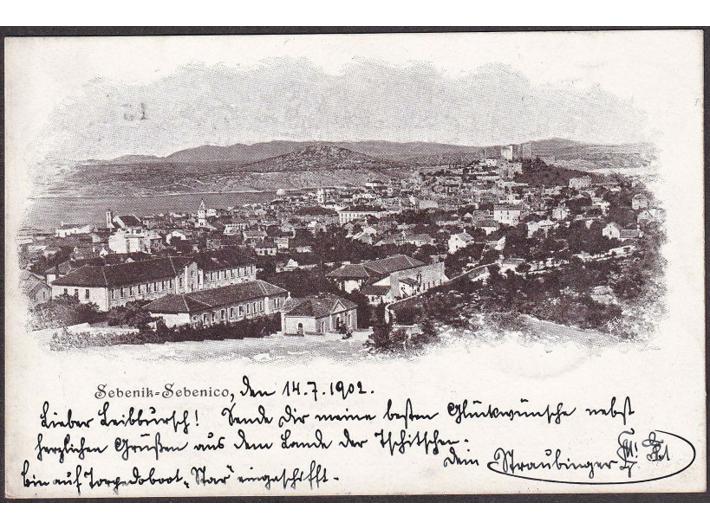 Sebenik=Sebenico, den 14.7.1902.
Lieber Leibbursch! Sende Dir meine besten Glückwünsche nebst
herzlichen Grüßen aus dem Lande der Tschitschen.
Dein Straubinger
bin auf Torpedoboot „Star" eingeschifft.